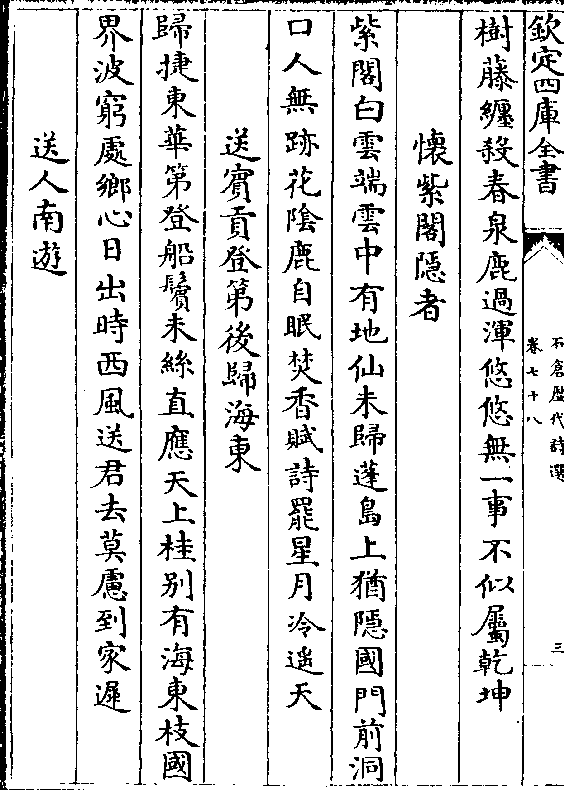 欽定四庫全書
石倉歷代詩選
卷七十八
三
樹藤纏殺春泉鹿過渾悠悠無一事不似屬乾坤
懷紫閣隱者
紫閣白雲端雲中有地仙未歸蓬島上猶隱國門前洞
口人無跡花陰鹿自眠焚香賦詩罷星月冷遙天
送賓貢登第後歸海東
歸捷東華第登船鬢未絲直應天上桂别有海東枝國
界波窮處鄉心日出時西風送君去莫慮到家遲
送人南遊